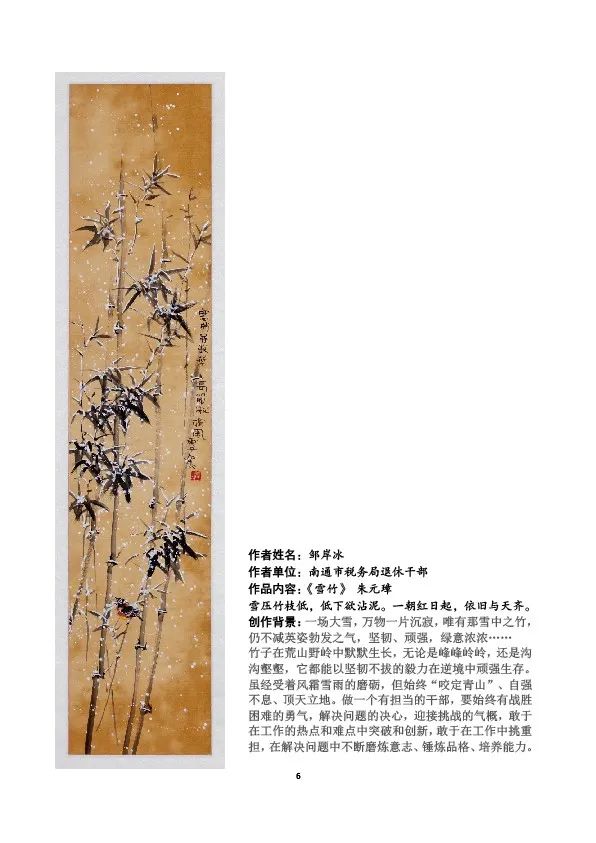 作者姓名：邹岸冰
作者单位：南通市税务局退休干部
作品内容：《雪竹》 朱元璋
雪压竹枝低，低下欲沾泥。一朝红日起，依旧与天齐。
创作背景：一场大雪，万物一片沉寂，唯有那雪中之竹，
仍不减英姿勃发之气，坚韧、顽强，绿意浓浓……
竹子在荒山野岭中默默生长，无论是峰峰岭岭，还是沟
沟壑壑，它都能以坚韧不拔的毅力在逆境中顽强生存。
虽经受着风霜雪雨的磨砺，但始终“咬定青山”、自强
不息、顶天立地。做一个有担当的干部，要始终有战胜
困难的勇气，解决问题的决心，迎接挑战的气概，敢于
在工作的热点和难点中突破和创新，敢于在工作中挑重
担，在解决问题中不断磨炼意志、锤炼品格、培养能力。
6